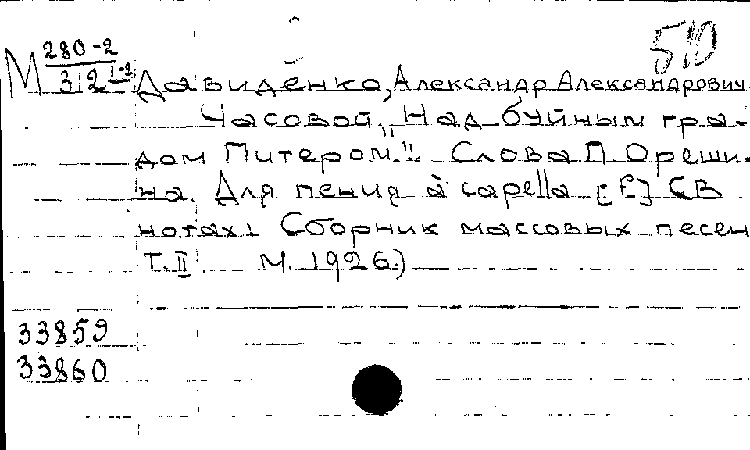 510
М 280-2
312 1-2
Давиденко, Александр Александрович
Часовой. „Над буйным гра-
дом Питером..." Слова П. Ореши-
на. Для пения à capella [f] (В
нотах: Сборник массовых песен
Т. II М. 1926.)
33859
33860